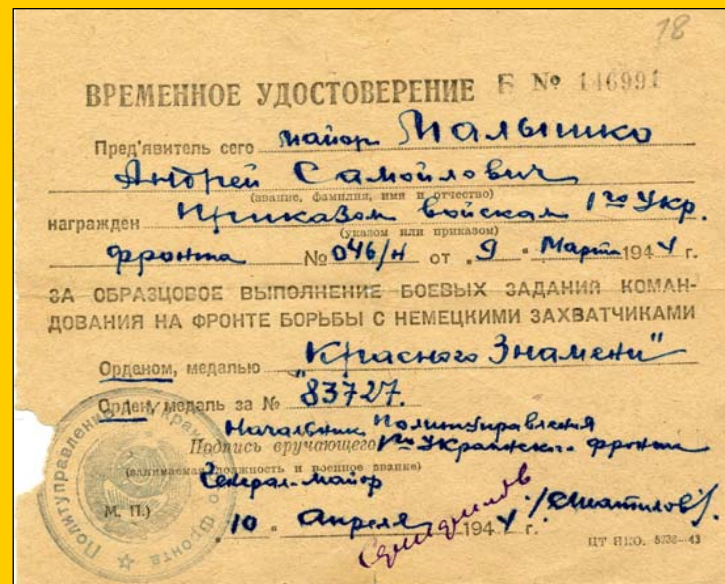 18
ВРЕМЕННОЕ УДОСТОВЕРЕНИЕ Б № 146991
Пред'явитель сего майор Малышко
Андрей Самойлович
(звание, фамилия, имя и отчество)
награжден Приказом войскам 1го Укр.
(указом или приказом)
фронта № 046/н от „9" Марта 1944 г.
ЗА ОБРАЗЦОВОЕ ВЫПОЛНЕНИЕ БОЕВЫХ ЗАДАНИЙ КОМАН-
ДОВАНИЯ НА ФРОНТЕ БОРЬБЫ С НЕМЕЦКИМИ ЗАХВАТЧИКАМИ
Орденом, медалью „Красного Знамени"
Орден, медаль за № 83727.
Начальник Политуправления
Подпись вручающего 1го Украинского фронта
(занимаемая должность и военное звание)
Генерал-майор
М. П.) „10" Апреля 1944 г. /Шатилов/
ЦТ НКО. 43
Политуправление 1 Украинского фронта